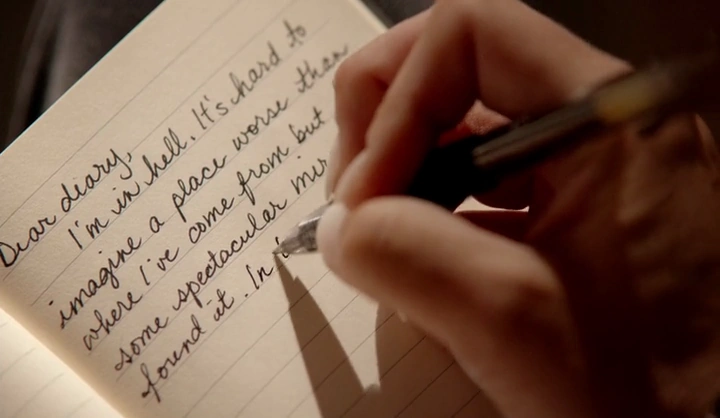 Dear diary,
I'm in hell. It's hard to
imagine a place worse than
where I've come from but
some spectacular mir
found it. In